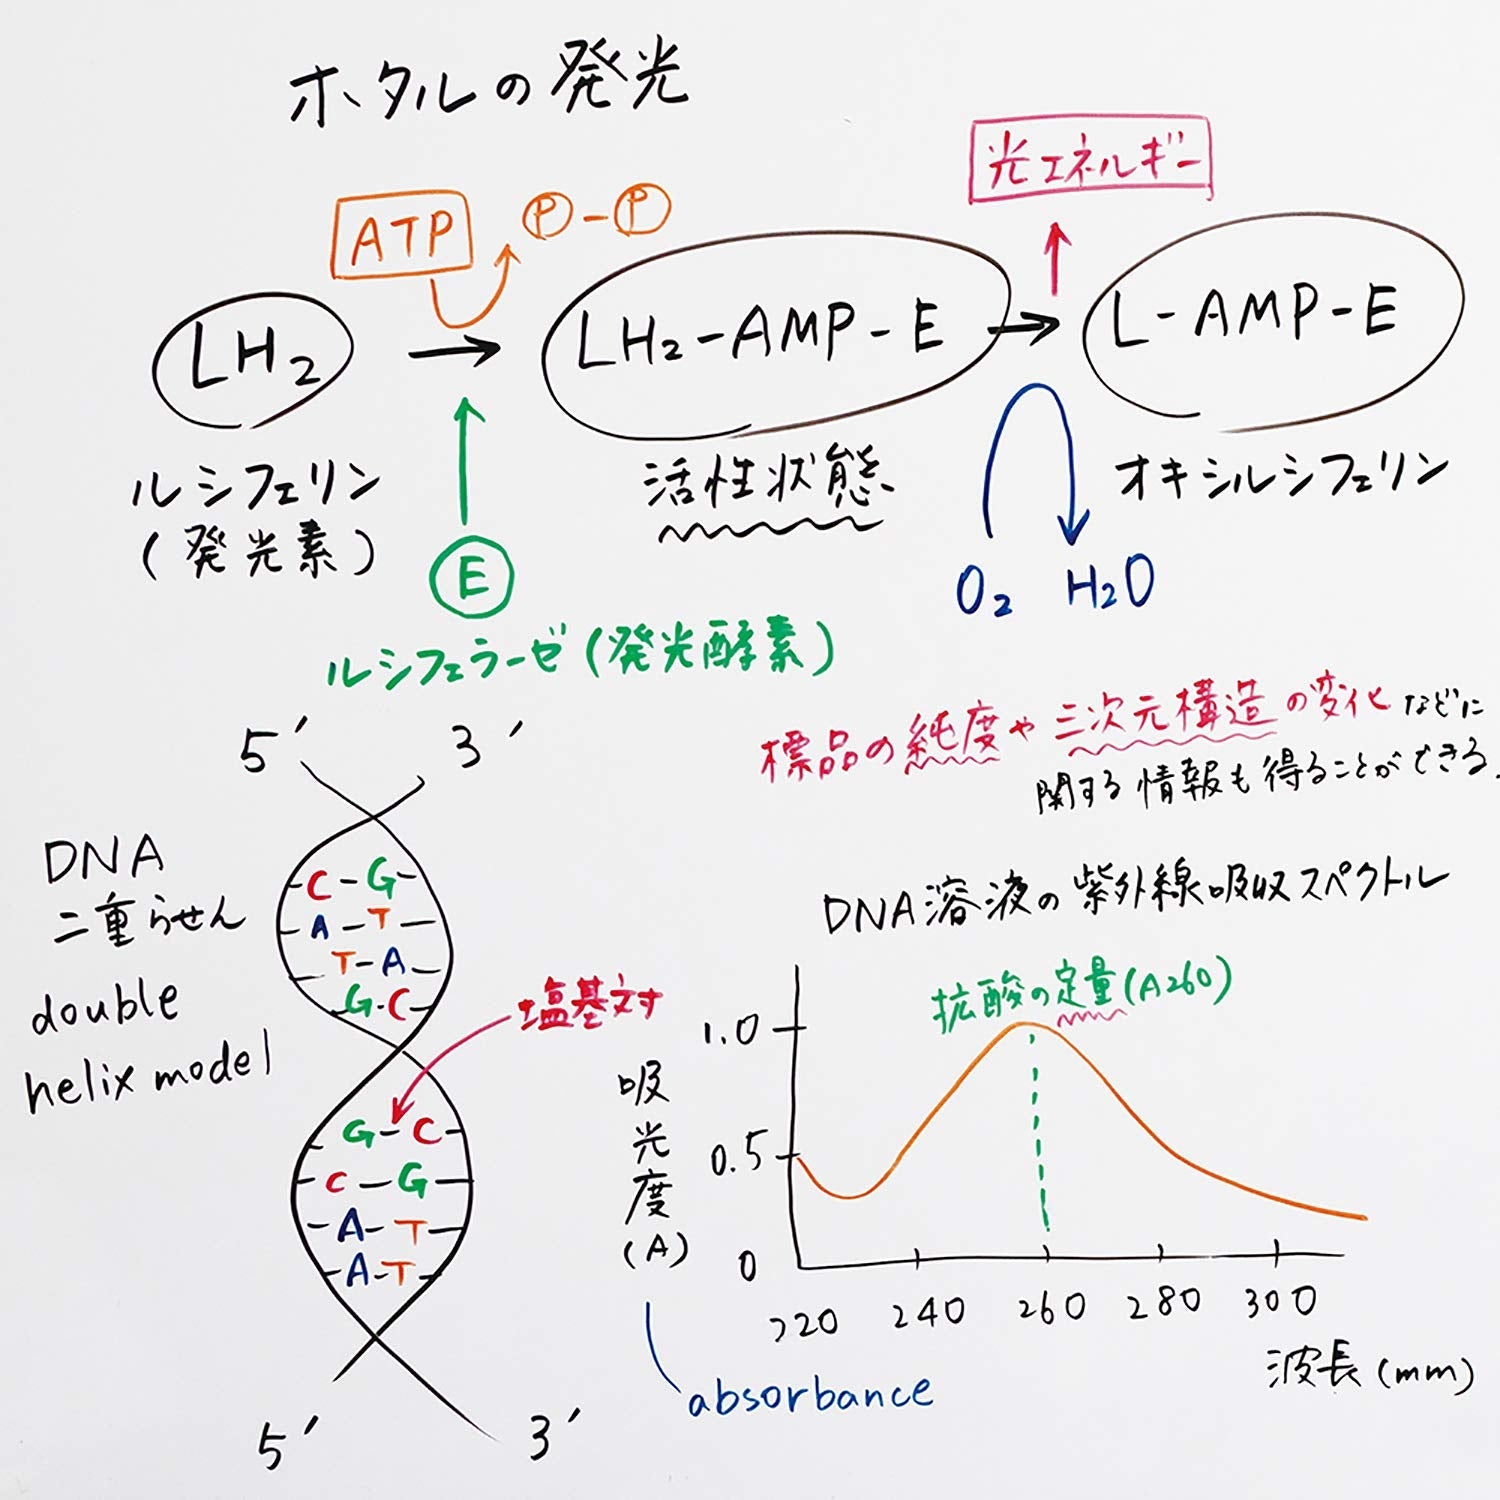 ホタルの発光
ATP
P-P
光エネルギー
LH2
LH2-AMP-E
L-AMP-E
ルシフェリン
(発光素)
活性状態
オキシルシフェリン
E
O2 H2O
ルシフェラーゼ(発光酵素)
標品の純度や三次元構造の変化などに
関する情報も得ることができる.
5' 3'
DNA
二重らせん
double
helix model
C-G
A-T
T-A
G-C
塩基対
G-C
C-G
A-T
A-T
5' 3'
DNA溶液の紫外線吸収スペクトル
拡酸の定量(A260)
1.0
0.5
0
吸光度(A)
220 240 260 280 300
波長(mm)
absorbance